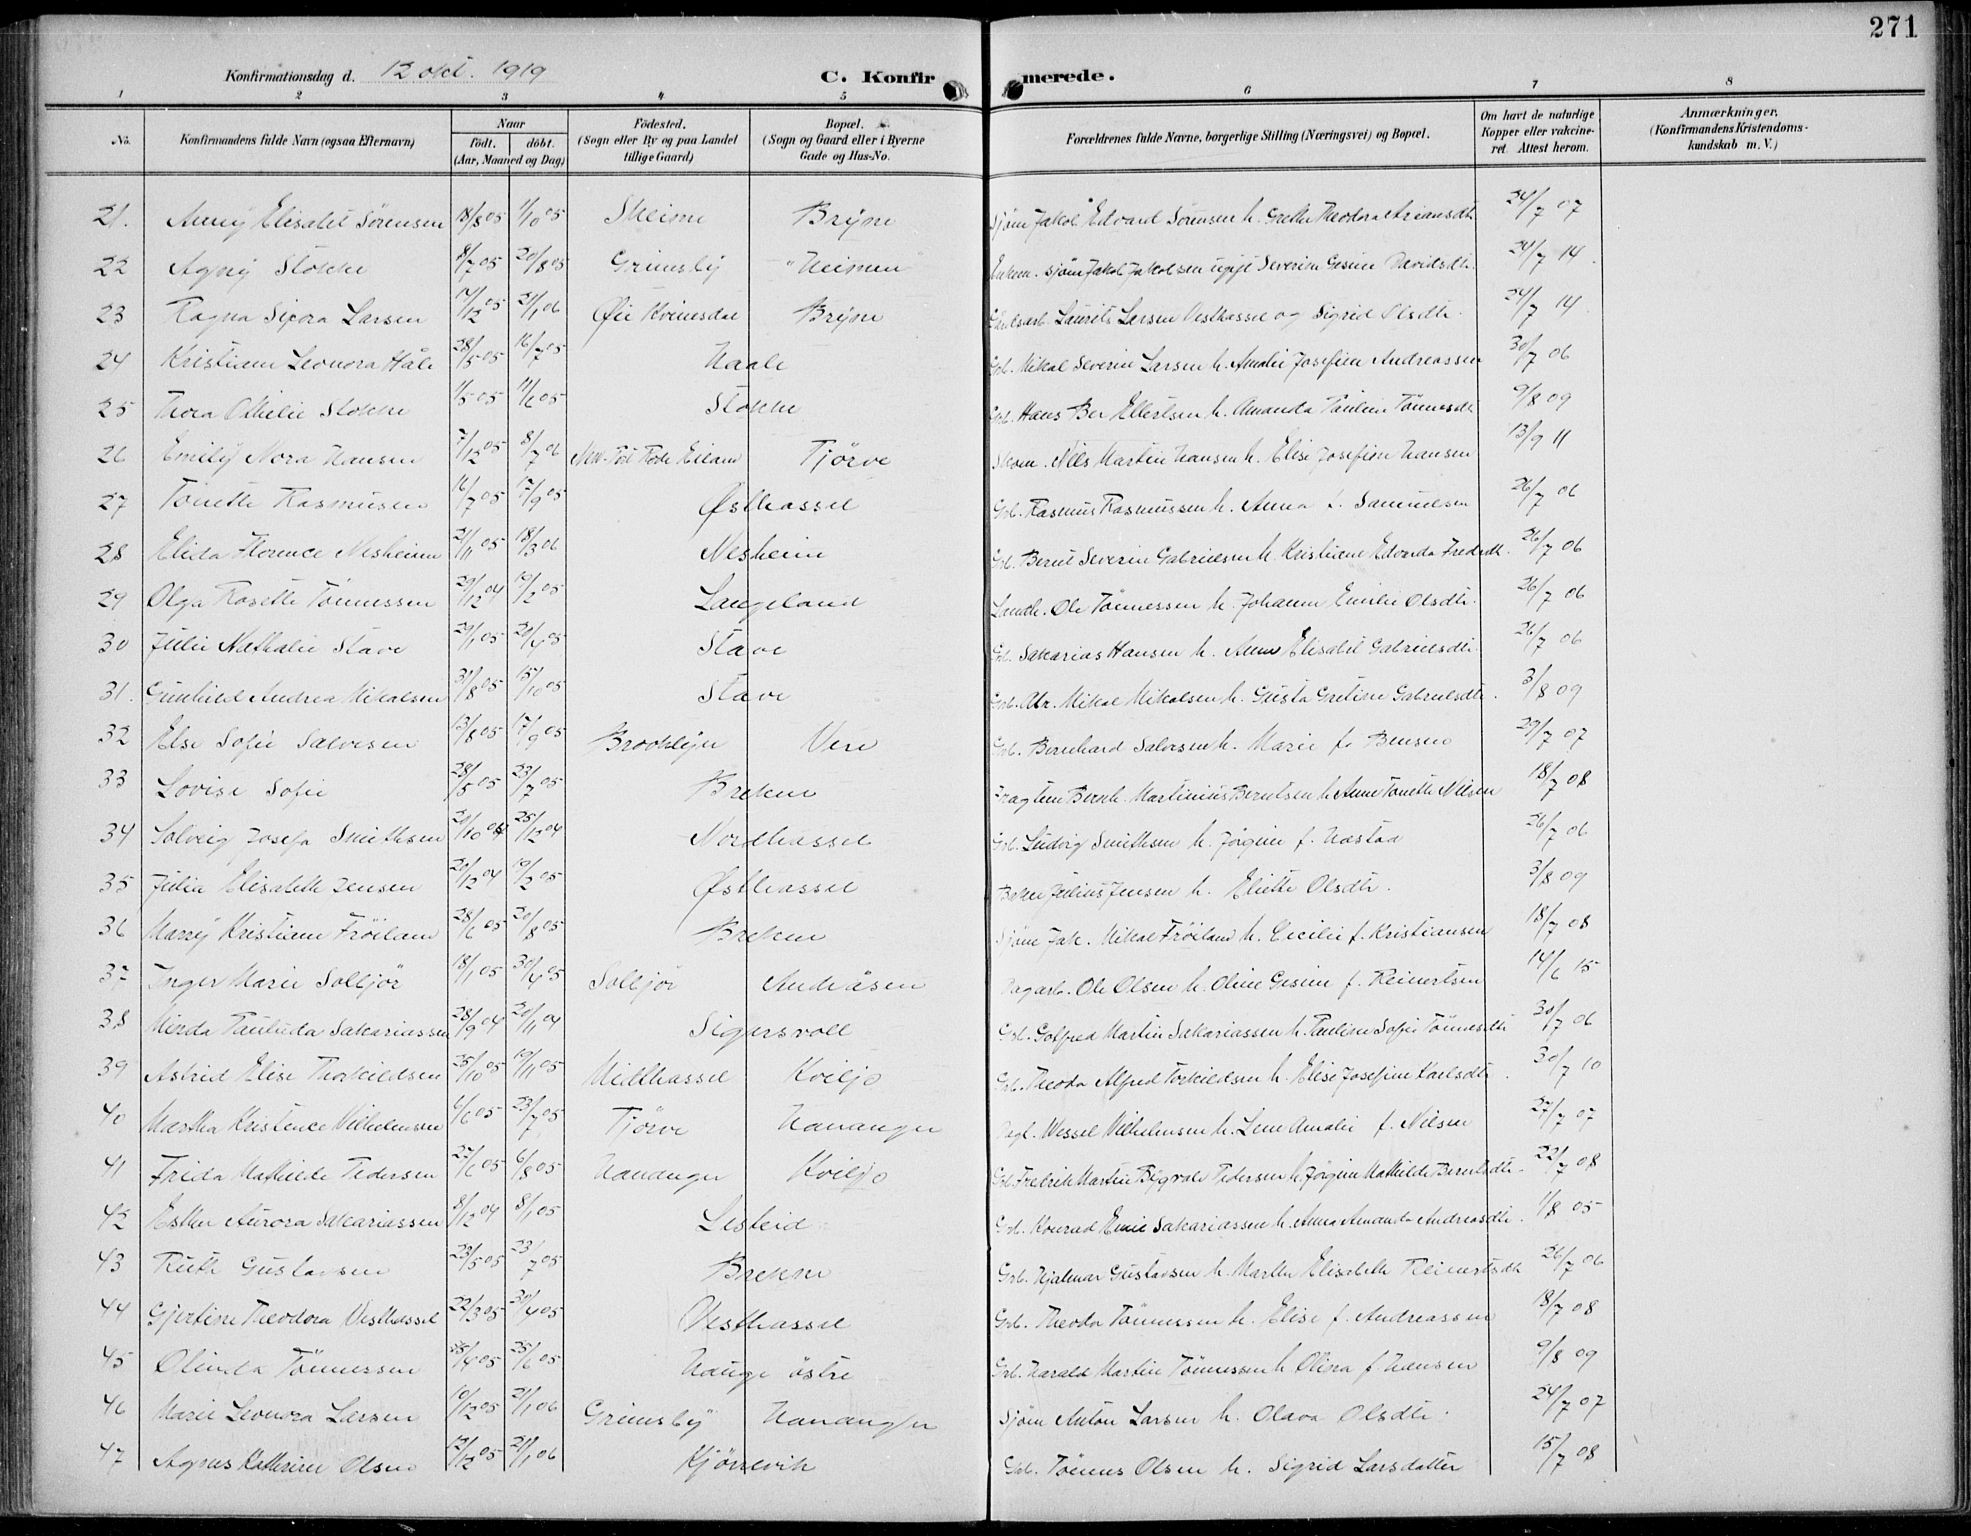 271
Konfirmationsdag d. 12 okt. 1919 C. Konfir merede.
1 2 3 4 5 6 7 8
No. Konfirmandens fulde Navn (ogsaa Efternavn) Naar födt. döbt. (Aar, Maaned og Dag) Födested. (Sogn eller By og paa Landet tillige Gaard) Bopæl. (Sogn og Gaard eller i Byerne Gade og Hus-No. Forældrenes fulde Navne, borgerlige Stilling (Næringsvei) og Bopæl. Om havt de naturlige Kopper eller vakcineret. Attest herom. Anmærkninger. (Konfirmandens Kristendomskundskab m. V.)
21. Anny Elisabet Sörensen 18/8 05 1/10 05 Skeime Bryne Sjöm Jakob Edvard Sörensen h. Grethe Theodora Ariansdtr 24/7 07
22 Agny Stokke 8/7 05 20/8 05 Grimsby "Heimen" Enkem. sjöm Jakob Jakobsen ugift Severine Gesine Davidsdtr. 24/7 14.
23 Ragna Sipora Larsen 14/12 05 21/1 06 Øie Kvinesdal Bryne Laurits Larsen Vesthassel og Sigrid Olsdtr. 24/7 14.
24 Kristiane Leonora Håle 28/5 05 16/7 05 Haale Grb. Mikal Severin Larsen h. Amalie Josefine Andreassen 30/7 06
25 Thora Othilie Stokke 1/5 05 11/6 05 Stokke Grb. Hans Ber Ellertsen h. Amanda Pauline Tönnesdtr 9/8 09
26 Emily Nora Hansen 7/12 05 8/7 06 Eiland Tjörve Skom. Nils Martin Hansen h. Elise Josefine Hansen 13/9 11
27 Tonette Rasmusen 16/7 05 17/9 05 Østhassel Grb. Rasmus Rasmussen h. Anna f. Samuelsen 26/7 06
28 Elida Florence Nesheim 21/11 05 18/3 06 Nesheim Grb. Bernt Severin Gabrielsen h. Kristiane Edvarda Fredrdtr. 26/7 06
29 Olga Rosette Tönnessen 29/12 04 19/2 05 Langeland Landh. Ole Tönnessen h. Johanne Emilie Olsdtr. 26/7 06
30 Julie Nathalie Stave 29/1 05 20/4 05 Stave Grb. Sakarias Hansen h. Anne Elisabet Gabrielsdtr. 26/7 06
31. Gunhild Andrea Mikalsen 31/8 05 15/10 05 Stave Grb. Abr. Mikal Mikalsen h. Gusta Gretine Gabrielsdtr. 3/8 09
32 Else Sofie Salvesen 13/8 05 17/9 05 Brooklyn Vere Grb. Bernhard Salvesen h. Marie f. Bensen 29/7 07
33 Lovise Sofie 28/5 05 23/7 05 Brekne Bernh. Martinius Berntsen h Anne Tonette Nilsen 18/7 08
34 Solveig Josefa Smithsen 20/10 04 25/12 04 Nordhassel Grb. Ludvig Smithsen h. Jörgine f. Hastad 26/7 06
35 Julia Elisabeth Jensen 20/12 04 19/2 05 Østhassel Julius Jensen h. Eliette Olsdtr. 3/8 09
36 Marry Kristiane Fröiland 28/6 05 20/8 05 Brekne Sjöm Jak. Mikal Fröiland h. Cecilie f. Kristiansen 18/7 08
37 Inger Marie Solbjör 18/1 05 30/4 05 Solbjör Andråsen Dagarb. Ole Olsen h. Oline Gesine f. Reinertsen 14/6 15
38 Minda Paulinda Sakariassen 28/9 04 20/11 04 Sigersvoll Grb. Gotfred Martin Sakariassen h. Pauline Sofie Tönnesdtr 30/7 06
39 Astrid Elise Thorkildsen 25/10 05 19/11 05 Midthassel Kviljo Grb. Theodor Alfred Torkildsen h. Elise Josefine Karlsdtr. 30/7 10
40 Martha Kristence Vilhelmsen 6/6 05 23/7 05 Tjörve Hananger Dagl. Wessel Vilhelmsen h. Lene Amalie f. Nilsen 27/7 07
41 Frida Mathilde Pedersen 27/6 05 6/8 05 Hananger Kviljo Grb. Fredrik Martin Pedersen h. Jörgine Mathilde Berntsdtr. 22/7 08
42 Esther Aurora Sakariassen 8/12 04 8/1 05 Lesteid Grb. Konrad Emil Sakariassen h. Anna Amanda Andreasdtr. 11/8 05
43 Ruth Gustavsen 23/5 05 23/7 05 Brekne Grb. Hjalmar Gustavsen h. Marthe Elisabeth Reinertsdtr 26/7 06
44 Gjertine Theodora Vesthassel 22/3 05 30/4 05 Vesthassel Grb. Theodor Tönnessen h. Elise f. Andreassen 18/7 08
45 Olinda Tönnessen 28/4 05 25/6 05 Hauge östre Grb. Harald Martin Tönnessen h Olina f. Hansen 9/8 09
46 Marie Leonora Larsen 10/12 05 21/1 06 Grimsby Hananger Sjöm Anton Larsen h. Olava Olsdtr. 24/7 07
47 Agnes Kathrine Olsen 12/12 05 21/1 06 Kjörrevik Grb. Tönnes Olsen h. Sigrid Larsdatter 15/7 08